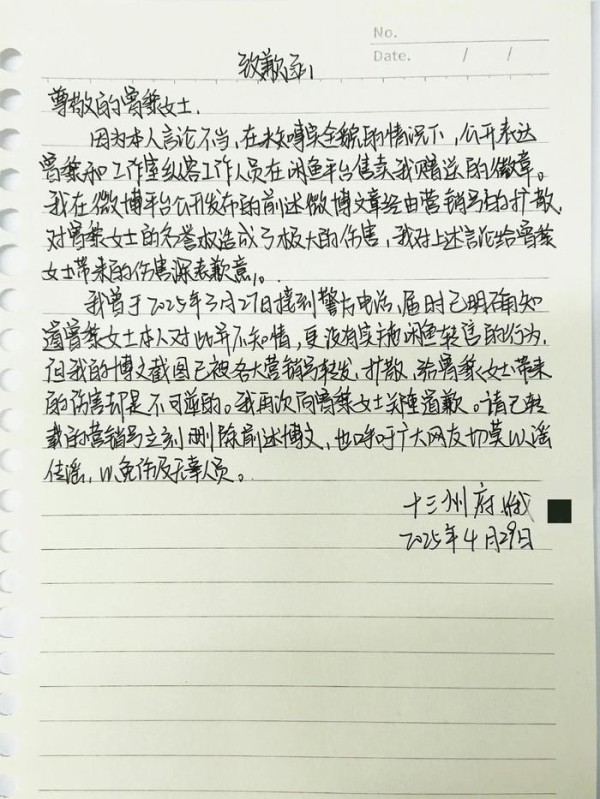 No.
Date. / /
致歉函
尊敬的曾黎女士.
因为本人言论不当,在未窥得完全貌的情况下,公开表达
曾黎和工作室纵容工作人员在闲鱼平台售卖我赠送的徽章。
我在微博平台公开发布的前述微博文章经由营销号的扩散,
对曾黎女士的名誉权造成了极大的伤害,我对上述言论给曾黎
女士带来的伤害深表歉意。
我曾于2025年3月27日接到警方电话,届时已明确知
道曾黎女士本人对此并不知情,更没有实施闲鱼转售的行为,
但我的博文截图已被各大营销号转发、扩散,给曾黎女士带来
的伤害却是不可逆的。我再次向曾黎女士郑重道歉。请已转
载的营销号立刻删除前述博文,也呼吁广大网友切莫以谣
传谣,以免伤及无辜人员。
十三州府
2025年4月29日